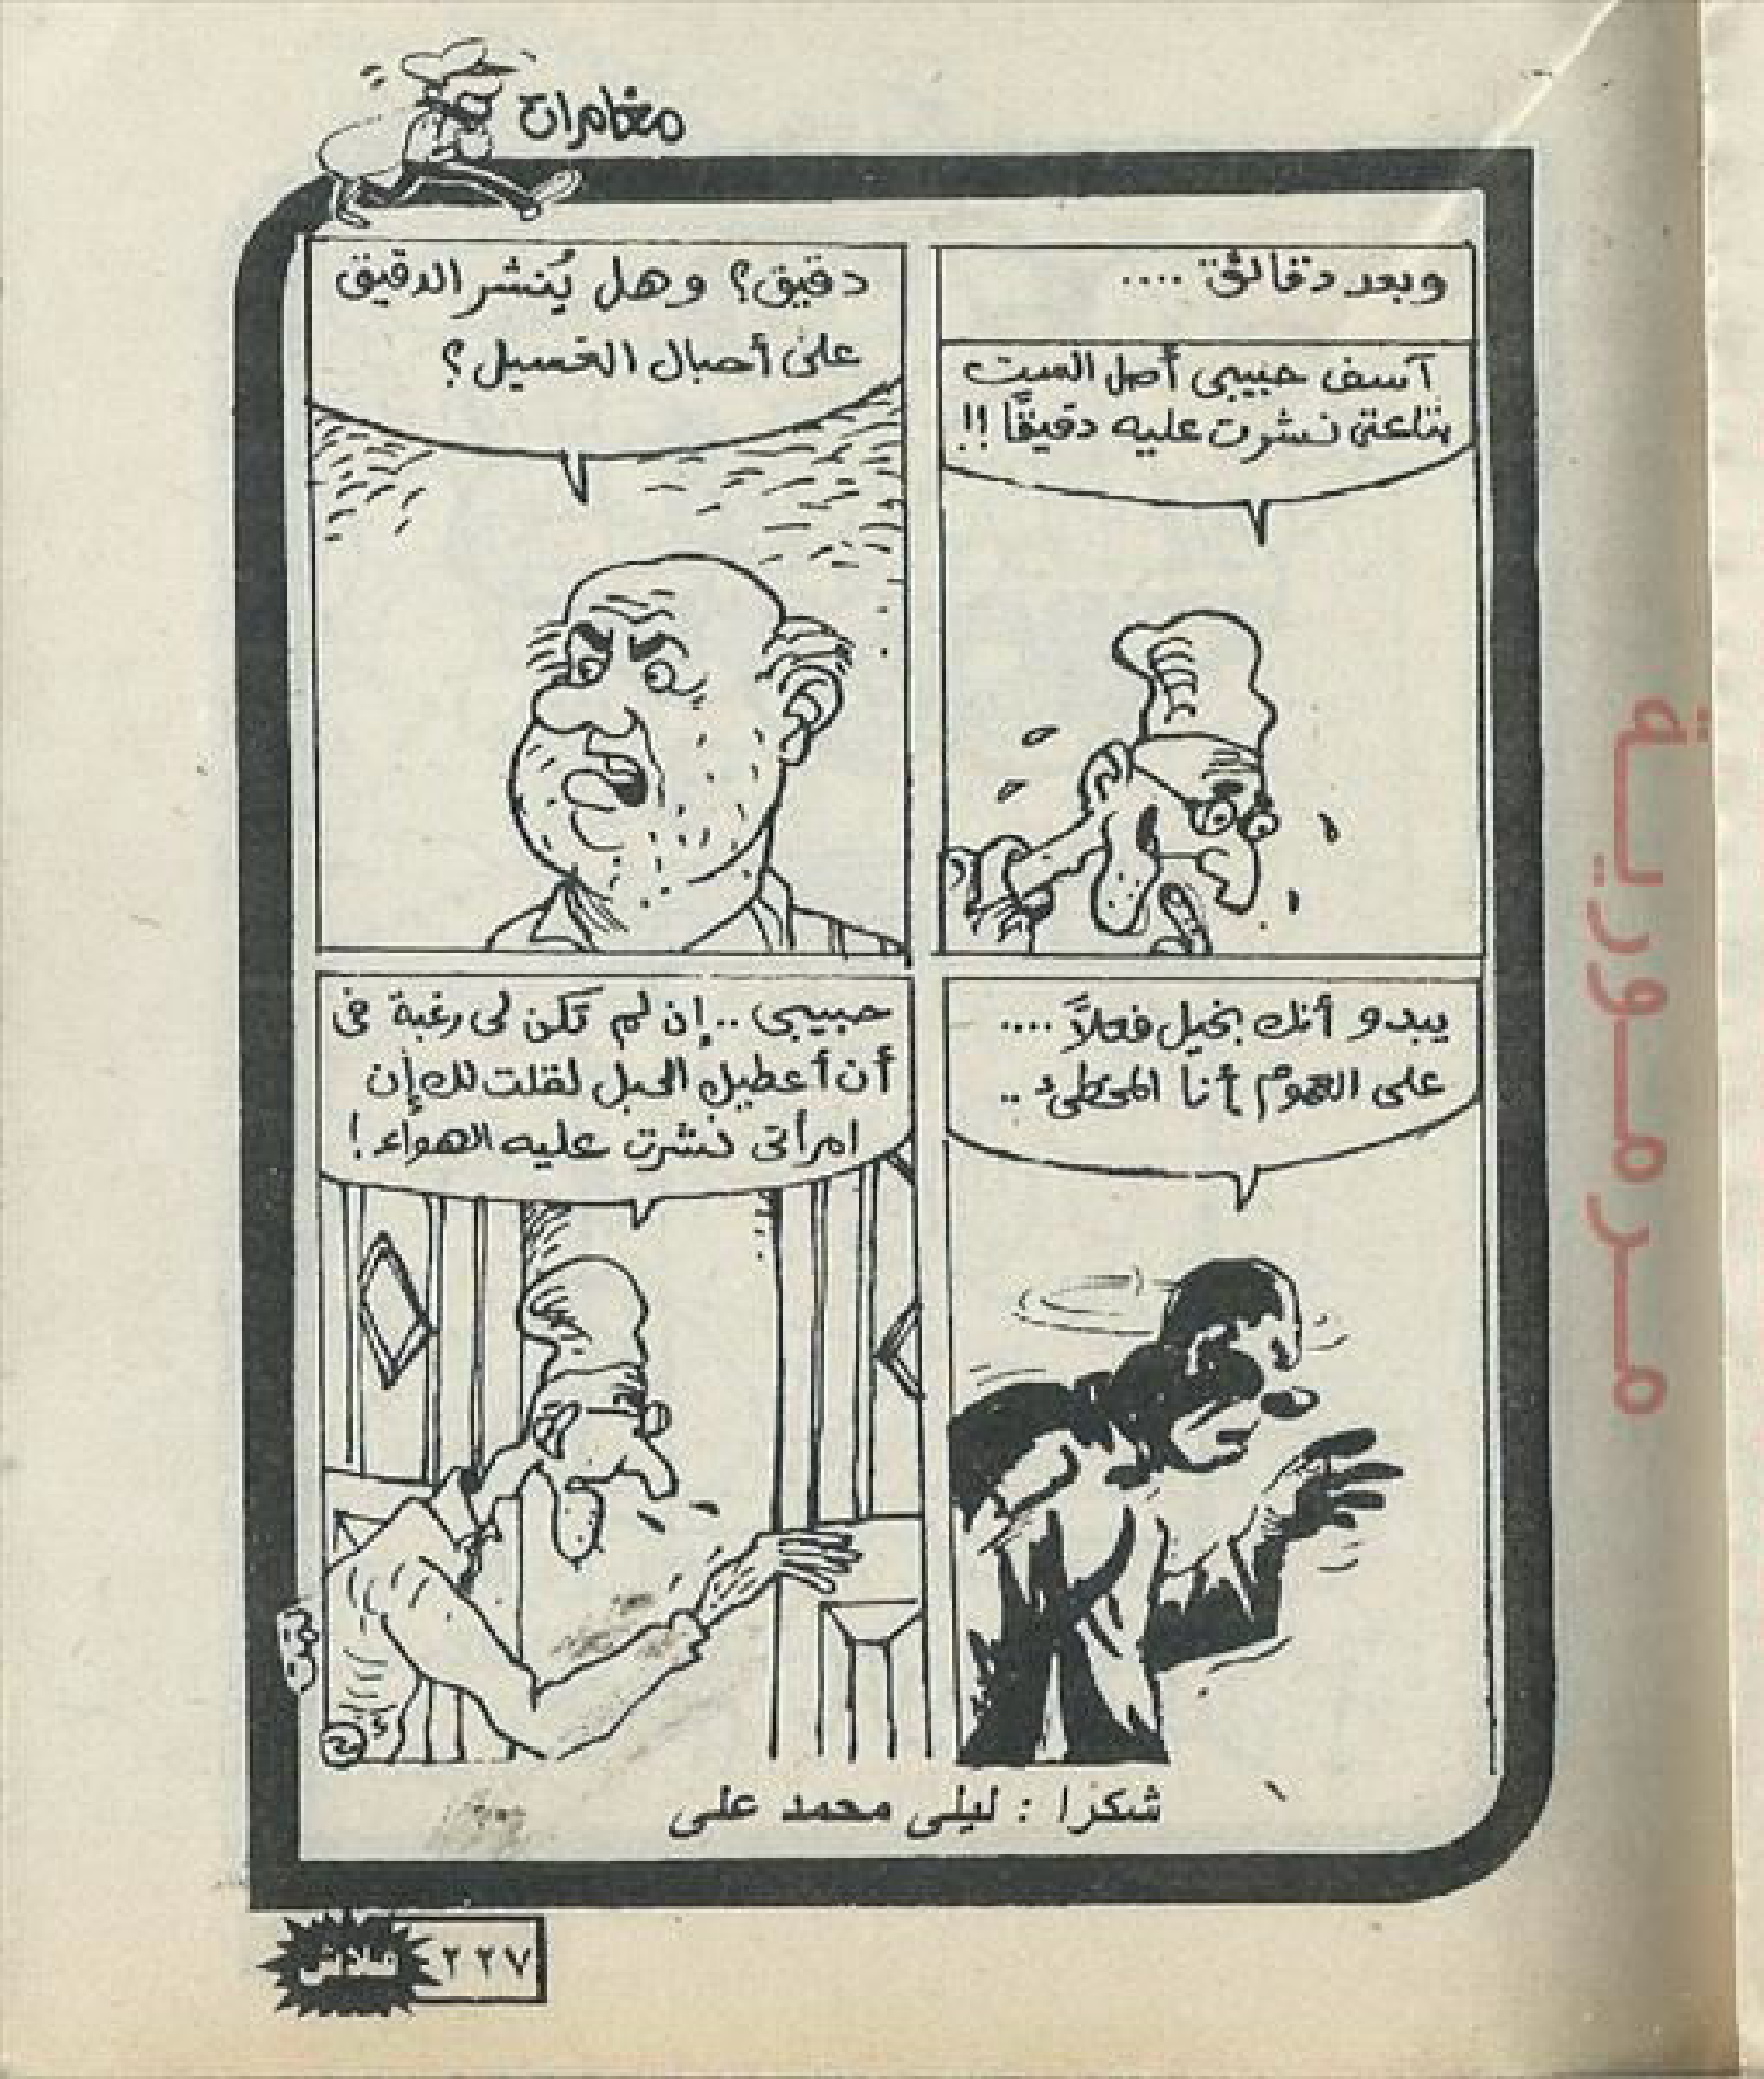 مغامرات
وبعد دقائق ....
آسف حبيبى أصل الست
بتاعتى نشرت عليه دقيقًا !!
دقيق؟ وهل يُنشر الدقيق
على أحبال الغسيل؟
يبدو أنك بخيل فعلاً ....
على العموم أنا المخطئ ..
حبيبى .. إن لم تكن لى رغبة فى
أن أعطيك الحبل لقلت لك إن
امرأتى نشرت عليه الهواء !
تمت
شكرًا : ليلى محمد على
فلاش ٢٢٧
مرمورية